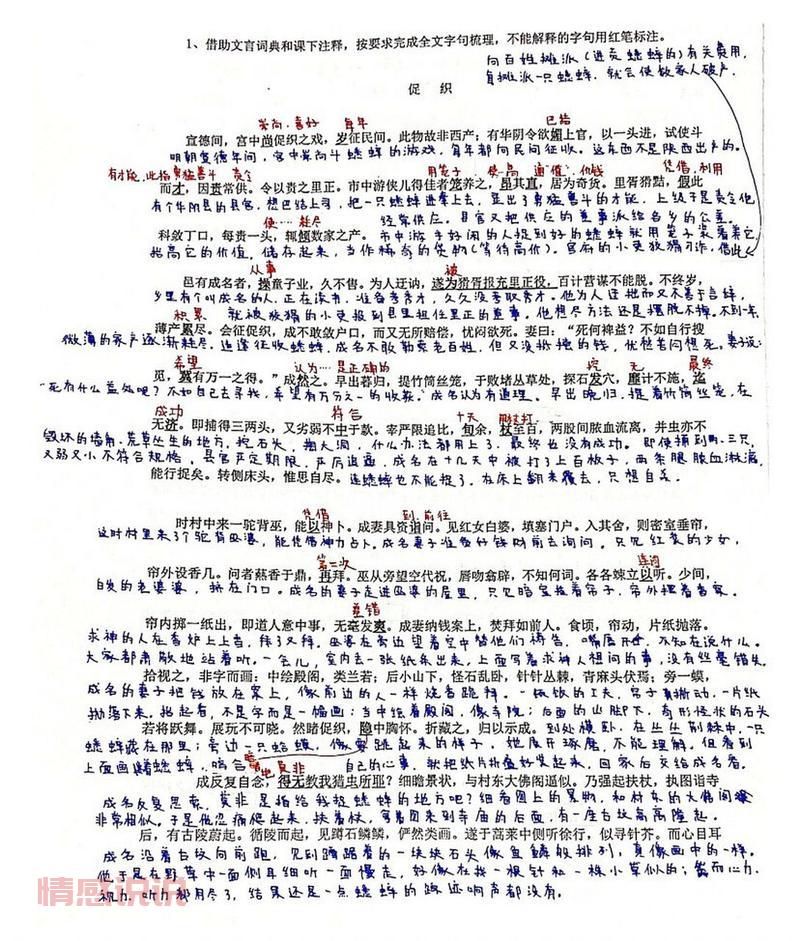 1、借助文言词典和课下注释，按要求完成全文字句梳理，不能解释的字句用红笔标注。
向百姓摊派（进贡蟋蟀的）有关费用，
每摊派一只蟋蟀，就会使数家人破产。
促 织
崇尚，喜好 每年 巴结
宣德间，宫中尚促织之戏，岁征民间。此物故非西产；有华阴令欲媚上官，以一头进，试使斗
明朝宣德年间，宫中崇尚斗蟋蟀的游戏，每年都向民间征收。这东西不是陕西出产的。
有才能，此指勇猛善斗 责令 用笼子 使…高 通"值"，价钱 凭借，利用
而才，因责常供。令以责之里正。市中游侠儿得佳者笼养之，昂其直，居为奇货。里胥猾黠，假此
有个华阴县的县官，想巴结上司，把一只蟋蟀进奉上去，显出了勇猛善斗的才能，上级于是责令他
使……耗尽 经常供应。县官又把供应的差事派给各乡的公差。
科敛丁口，每责一头，辄倾数家之产。市中游手好闲的人捉到好的蟋蟀就用笼子装着养它
抬高它的价值，储存起来，当作稀奇的货物（等待高价）。官府的小吏狡猾刁诈，借此
从事 被
邑有成名者，操童子业，久不售。为人迂讷，遂为猾胥报充里正役，百计营谋不能脱。不终岁，
乡里有个叫成名的人，正在读书，准备考秀才，久久没考取秀才。他为人迂拙而又不善言辞，
积累 就被狡猾的小吏报到县里担任里正的差事。他想尽方法还是摆脱不掉。不到一年
薄产累尽。会征促织，成不敢敛户口，而又无所赔偿，忧闷欲死。妻曰："死何裨益？不如自行搜
微薄的家产逐渐耗尽。适逢征收蟋蟀，成名不敢勒索老百姓，但又没抵偿的钱，忧愁苦闷想死。妻子说：
希望 认为……是正确的 挖 无 最终
觅，冀有万分之一得。"成然之。早出暮归，提竹筒丝笼，于败堵丛草处，探石发穴，靡计不施，迄
"死有什么益处呢？不如自己去寻找，希望有万分之一的收获。"成名认为有道理。早出晚归，提着竹筒丝笼，在
成功 符合 十天 用杖打
无济。即捕得三两头，又劣弱不中于款。宰严限追比，旬余，杖至百，两股间脓血流离，并虫亦不
毁坏的墙角，荒草丛生的地方，挖石头，掏大洞，什么办法都用上了，最终也没有成功。即使捕到两、三只，
又弱又小不符合规格，县官严定期限，严厉追逼，成名在十几天中被打了上百板子，两条腿脓血淋漓，
能行捉矣。转侧床头，惟思自尽。连蟋蟀也不能捉了，在床上翻来覆去，只想自杀。
凭借 到，前往
时村中来一驼背巫，能以神卜。成妻具资诣问。见红女白婆，填塞门户。入其舍，则密室垂帘，
这时村里来了个驼背巫婆，能凭借神力占卜。成名妻子准备好钱财前去询问。只见红装的少女，
第二次 连词
帘外设香几。问者爇香于鼎，再拜。巫从旁望空代祝，唇吻翕辟，不知何词。各各竦立以听。少间，
白发的老婆婆，挤在门口。成名的妻子走进巫婆的屋里，只见暗室拉着帘子，帘外摆着香案。
差错
帘内掷一纸出，即道人意中事，无毫发爽。成妻纳钱案上，焚拜如前人。食顷，帘动，片纸抛落。
求神的人在香炉上上香，拜了又拜。巫婆在旁边望着空中替他们祷告，嘴唇开合，不知在说什么。
大家都肃敬地站着听。一会儿，室内丢一张纸条出来，上面写着求神人想问的事，没有丝毫错失。
拾视之，非字而画：中绘殿阁，类兰若；后小山下，怪石乱卧，针针丛棘，青麻头伏焉；旁一蟆，
成名的妻子把钱放在案上，像前边的人一样烧香跪拜。一顿饭的工夫，帘子掀动，一片纸
抛落下来。拾起看，不是字而是一幅画：当中绘着殿阁，像寺院；后面的山脚下，奇形怪状的石头
若将跃舞。展玩不可晓。然睹促织，隐中胸怀。折藏之，归以示成。到处横卧，在丛丛荆棘中，一只
蟋蟀藏在那里；旁边一只蛤蟆，像要跳起来的样子。她展开琢磨，不能理解。但看到
上面画着蟋蟀，暗合自己的心事，就把纸片折叠好装起来，回家后交给成名看。
莫非
成反复自念，得无教我猎虫所耶？细瞻景状，与村东大佛阁逼似。乃强起扶杖，执图诣寺
成名反复思索，莫非是指给我捉蟋蟀的地方吧？细看图上的景物，和村东的大佛阁
非常相似。于是他忍痛爬起来，扶着杖，拿着图来到寺庙的后面，有一座古坟高高隆起。
后，有古陵蔚起。循陵而走，见蹲石鳞鳞，俨然类画。遂于蒿莱中侧听徐行，似寻针芥。而心目耳
成名沿着古坟向前跑，见到蹲踞着的一块块石头像鱼鳞般排列，真像画中的一样。
他于是在野草中一面侧耳细听一面慢走，好像在找一根针和一株小草似的；然而心力、
视力、听力都用尽了，结果还是一点蟋蟀的踪迹响声都没有。
情感说说